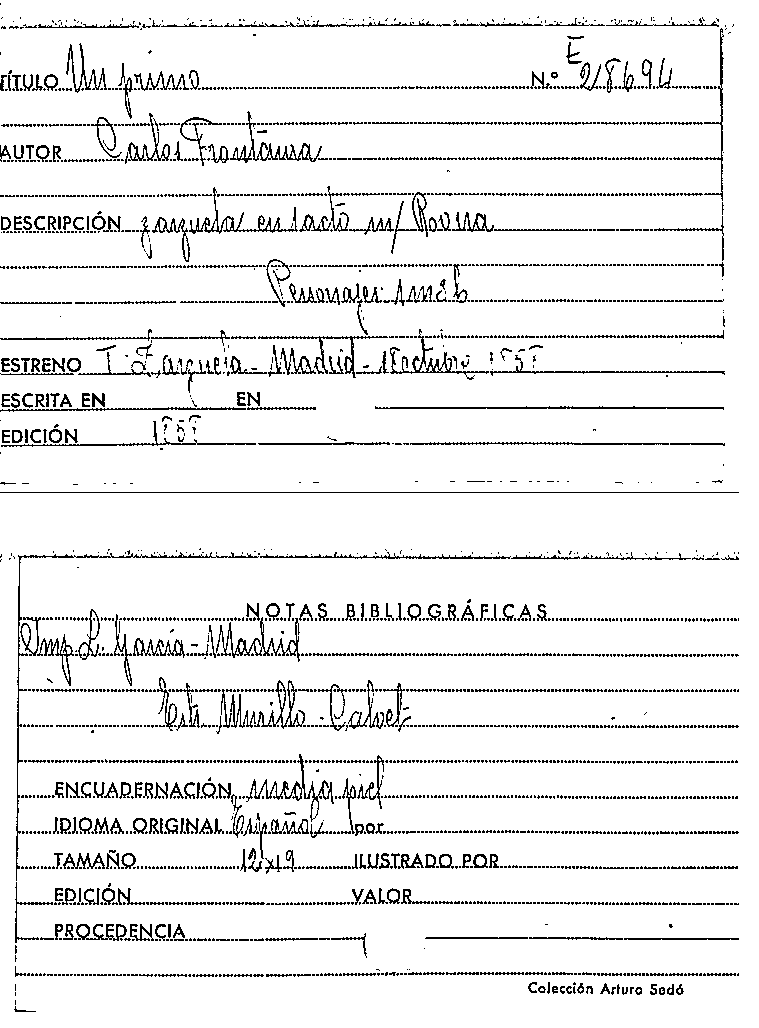 TÍTULO Un primo N.º E 28694
AUTOR Carlos Frontaura
DESCRIPCIÓN zarzuela en 1 acto m/ Rovira
Personajes
ESTRENO T. Zarzuela - Madrid - octubre 185
ESCRITA EN EN
EDICIÓN 185
NOTAS BIBLIOGRÁFICAS
Imp L. García - Madrid
Murillo - Calvet
ENCUADERNACIÓN media piel
IDIOMA ORIGINAL Español por
TAMAÑO 12x19 ILUSTRADO POR
EDICIÓN VALOR
PROCEDENCIA
Colección Arturo Sedó